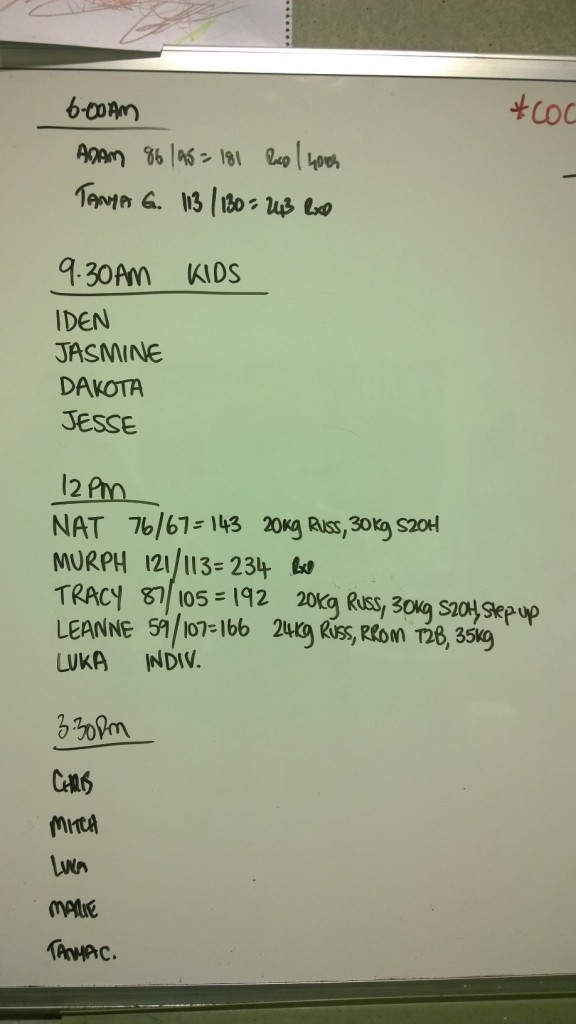 6.00AM
*COC
ADAM 86/95 = 181 RXD/40KG
TANYA G. 113/130 = 243 RXD
9.30AM KIDS
IDEN
JASMINE
DAKOTA
JESSE
12PM
NAT 76/67 = 143 20kg RUSS, 30kg S2OH
MURPH 121/113 = 234 RXD
TRACY 87/105 = 192 20kg RUSS, 30kg S2OH, step up
LEANNE 59/107 = 166 24kg RUSS, RROM T2B, 35kg
LUKA INDIV.
3.30PM
CHRIS
MITCH
LUKA
MARIE
TANYA C.